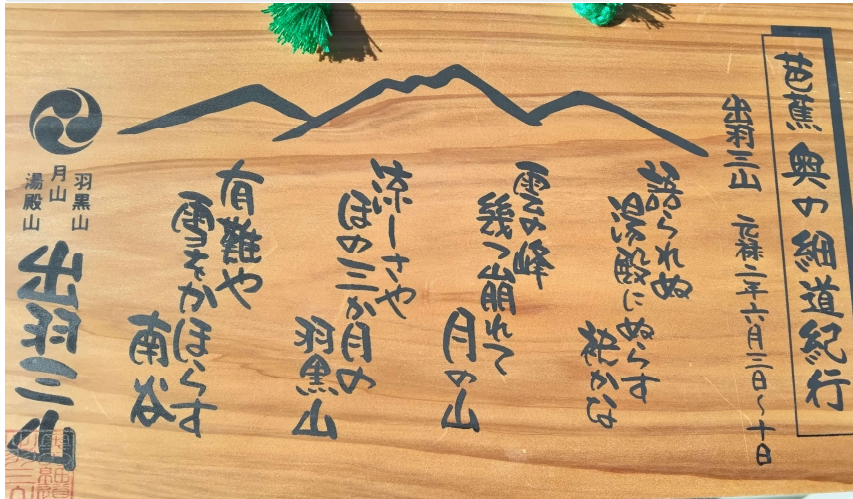 芭蕉 奥の細道紀行
出羽三山 元禄二年六月三日～十日
語られぬ
湯殿にぬらす
袂かな
雲の峰
幾つ崩れて
月の山
涼しさや
ほの三か月の
羽黒山
有難や
雪をかほらす
南谷
羽黒山
月山
湯殿山
出羽三山